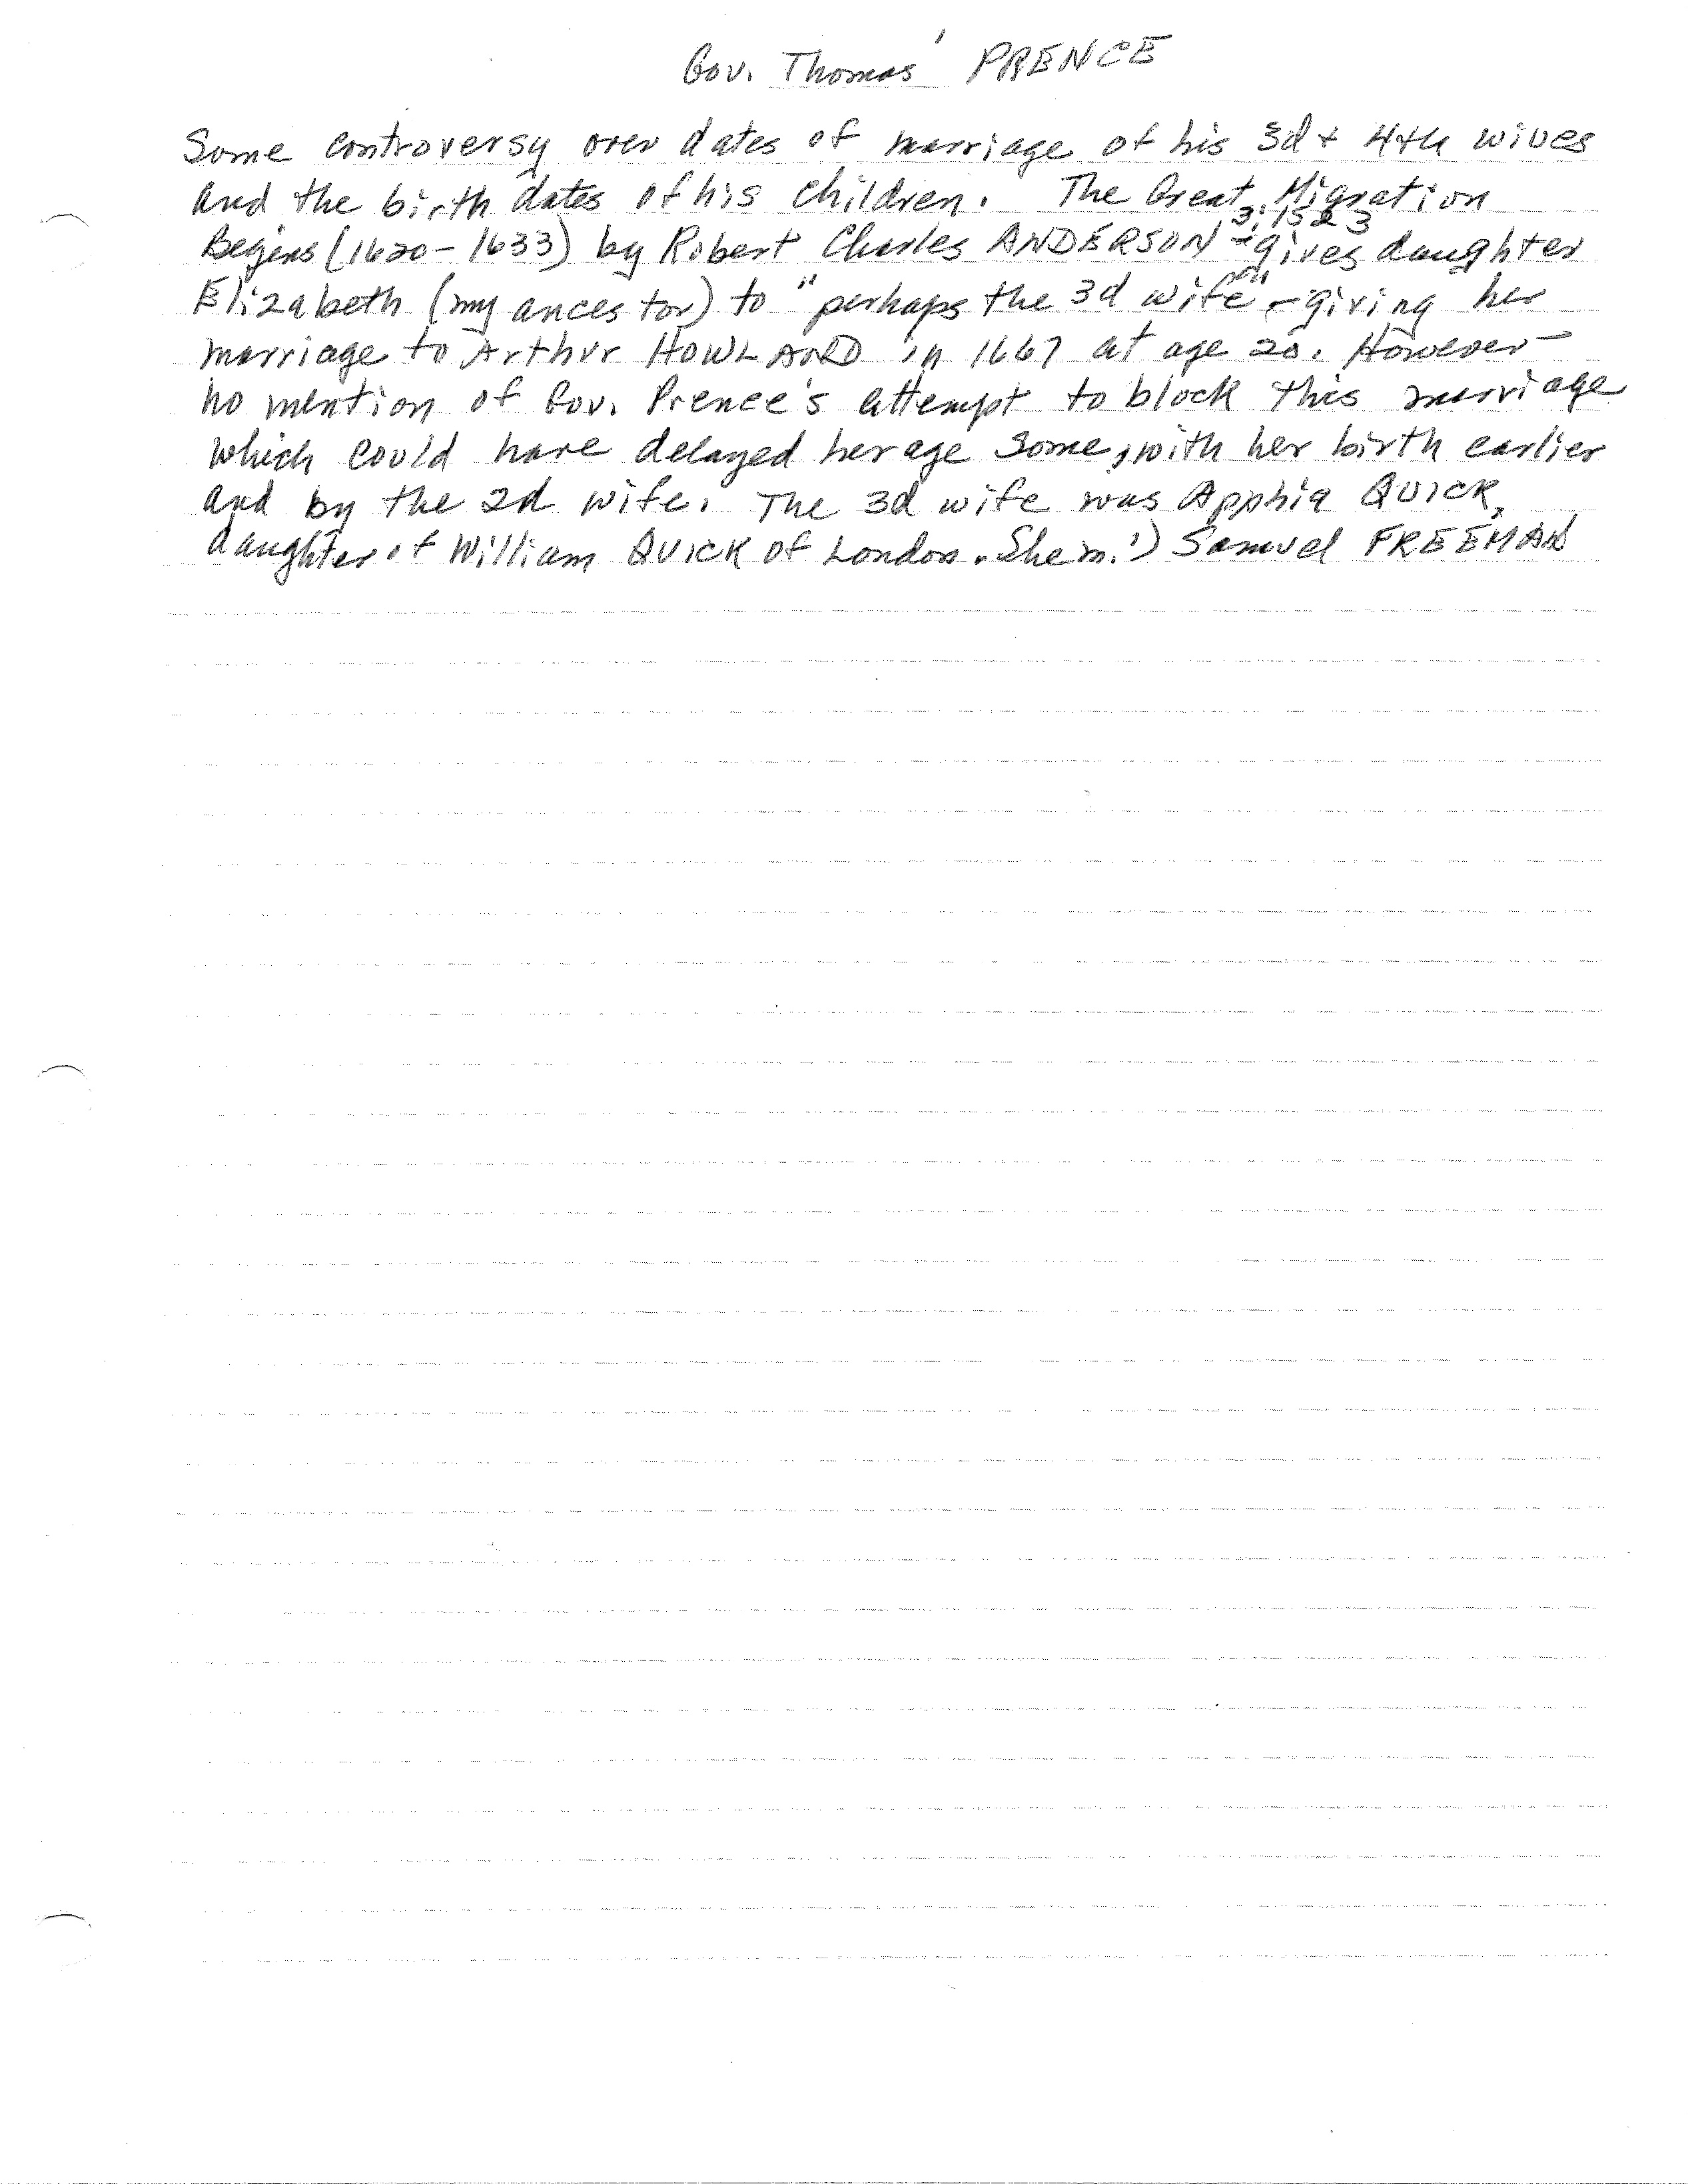 Gov. Thomas' PRENCE
Some controversy over dates of marriage of his 3d + 4th wives
and the birth dates of his children. The Great Migration
3:1523
Begins (1620-1633) by Robert Charles ANDERSON - gives daughter
Elizabeth (my ancestor) to "perhaps the 3d wife" - giving her
marriage to Arthur HOWLAND in 1667 at age 20. However -
no mention of Gov. Prence's attempt to block this marriage
which could have delayed her age some, with her birth earlier
and by the 2d wife. The 3d wife was Apphia QUICK,
daughter of William QUICK of London. She m. 1) Samuel FREEMAN